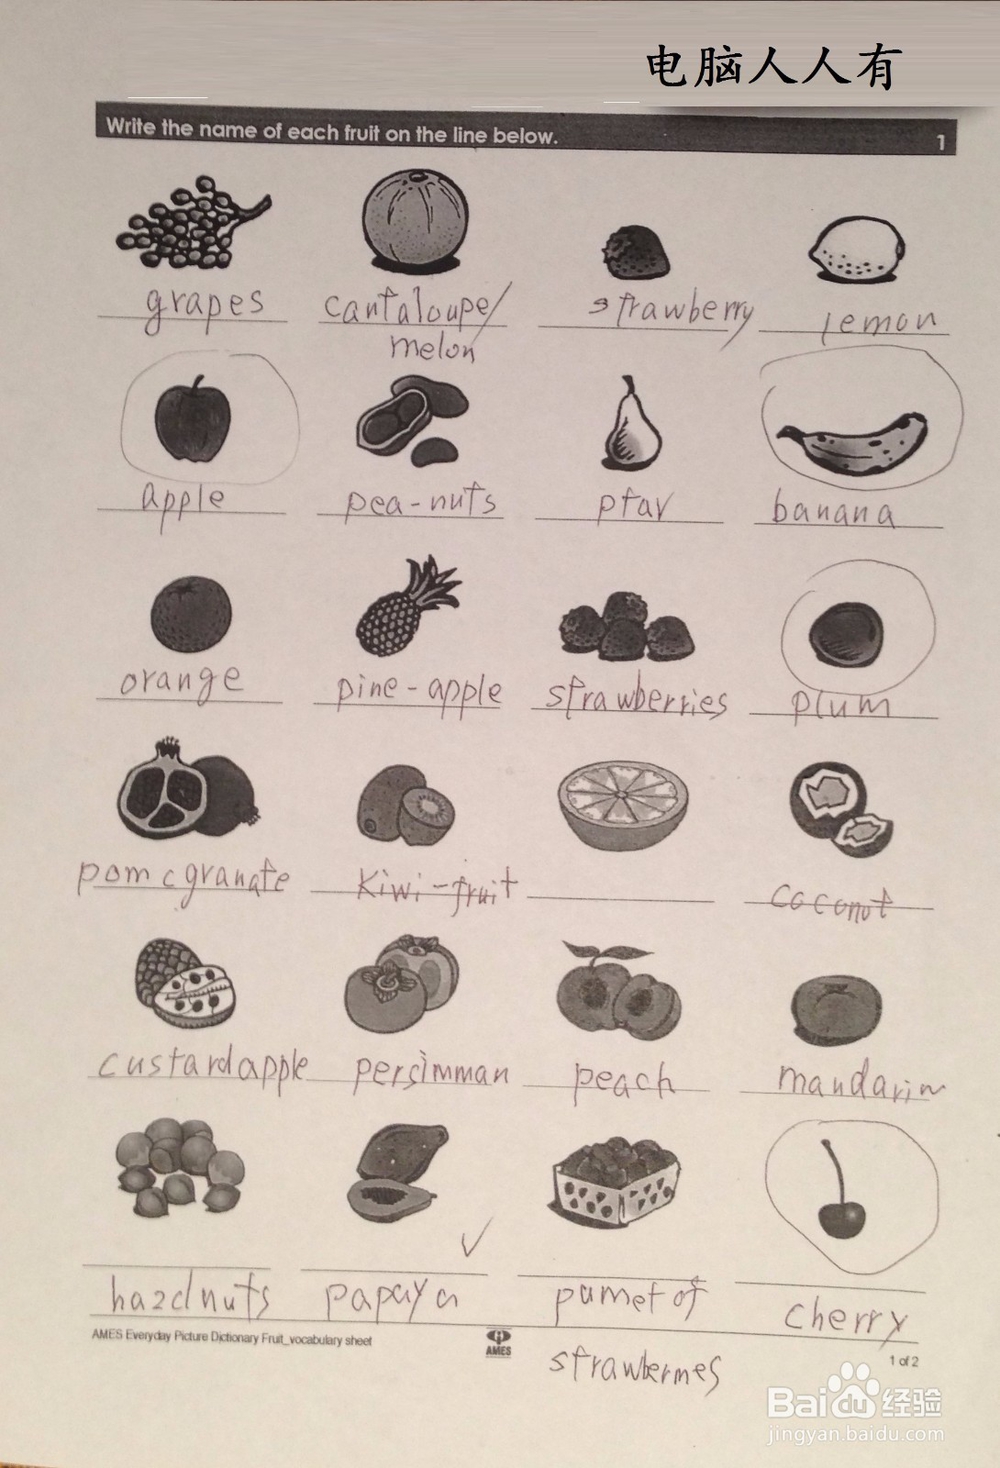 电脑人人有
Write the name of each fruit on the line below. 1
grapes cantaloupe/ strawberry lemon
melon
apple pea-nuts pear banana
orange pine-apple strawberries plum
pomegranate kiwi-fruit coconut
custardapple persimman peach mandarin
hazelnuts papaya punnet of cherry
strawberries
AMES Everyday Picture Dictionary Fruit_vocabulary sheet
AMES
1 of 2
Baidu经验
jingyan.baidu.com